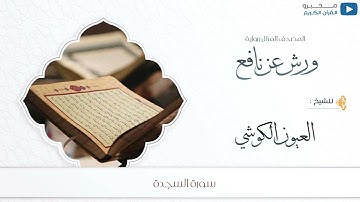 محبرو
القرآن الكريم
المصحف المرتل برواية
ورش عن نافع
للشيخ :
العيون الكوشي
سورة السجدة